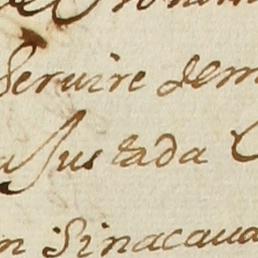 Seruire dem
a Justada
n Sinacaua